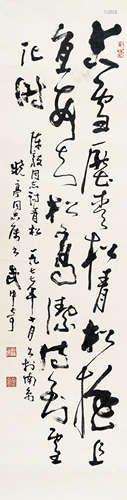 大雪壓青松青松挺且
直要知松高潔待到雪
化時
陳毅同志詩青松一九七七年十月于南京
曉亭同志屬書武中奇